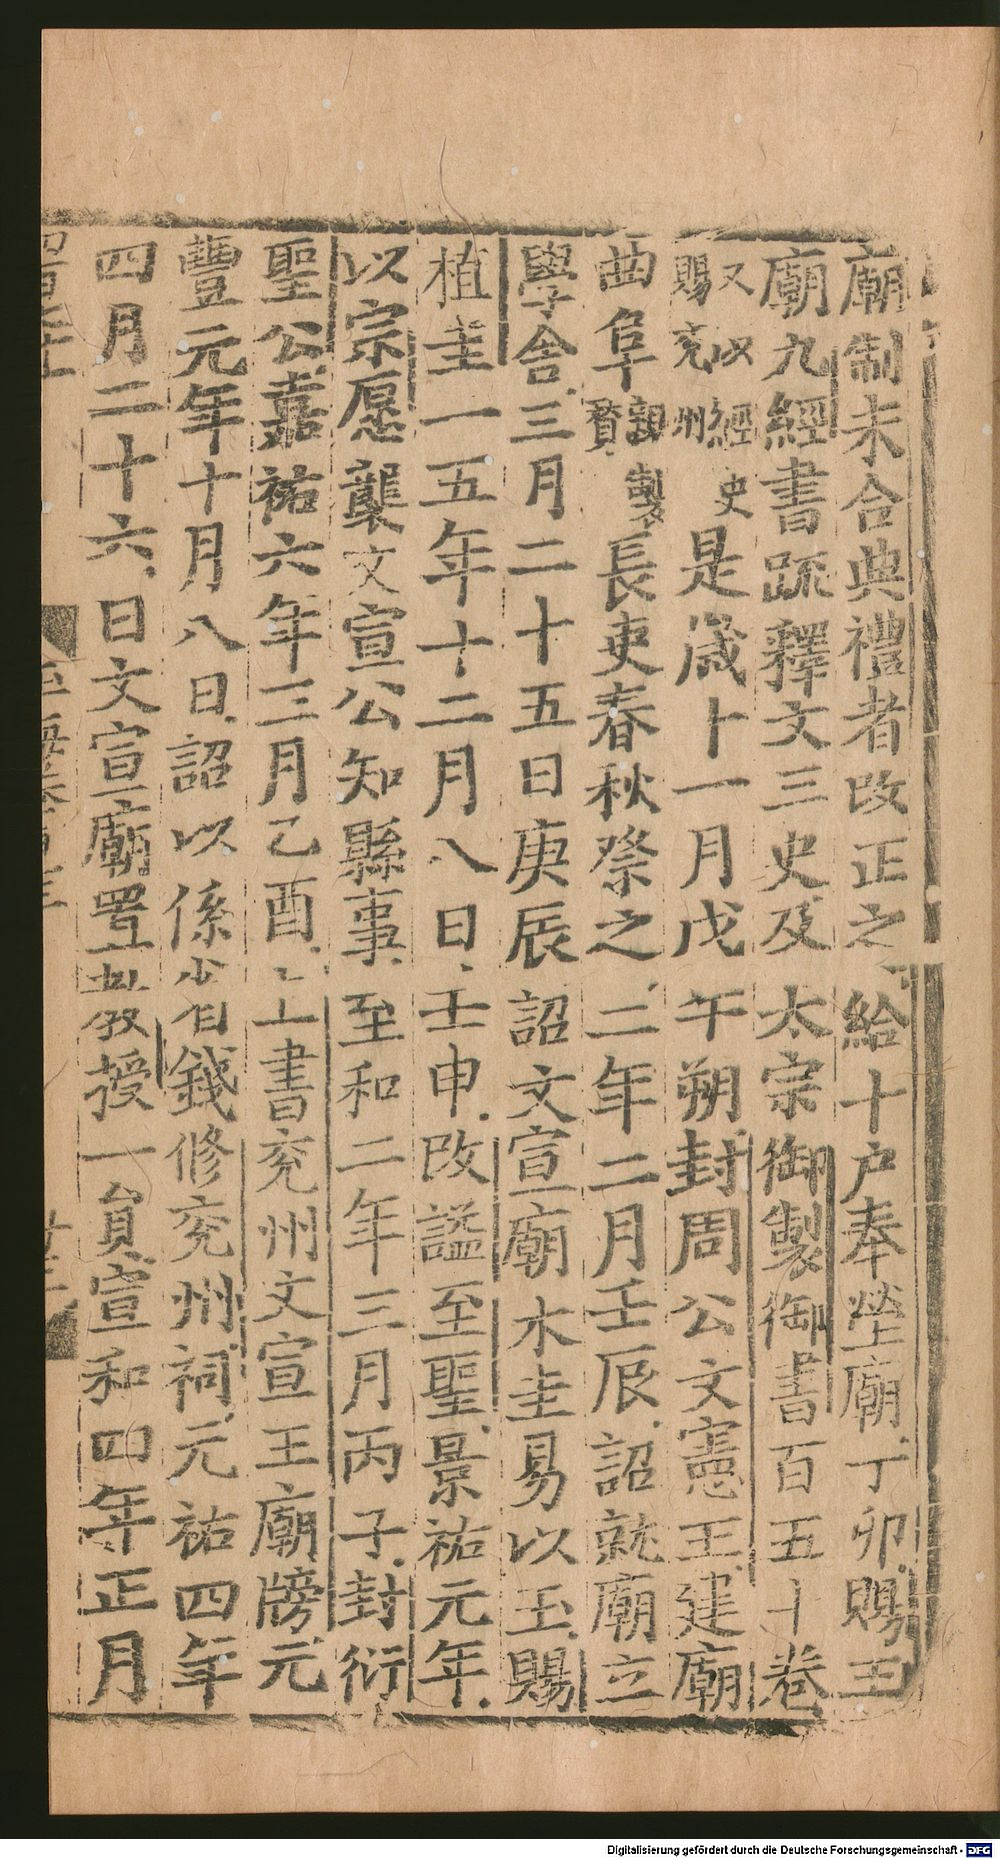 廟制未合典禮者改正之給十戶奉塋廟丁卯賜王
廟九經書疏釋文三史及太宗御製御書百五十卷
又以經史
賜兗州
是歲十一月戊午朔封周公文憲王建廟
曲阜
親製
贊
長吏春秋祭之二年二月壬辰詔就廟立
學舍三月二十五日庚辰詔文宣廟木圭易以玉賜
植圭一五年十二月八日壬申改謚至聖景祐元年
以宗愿襲文宣公知縣事至和二年三月丙子封衍
聖公嘉祐六年三月乙酉上書兗州文宣王廟牓元
豐元年十月八日詔以係省錢修兗州祠元祐四年
四月二十六日文宣廟置教授一員宣和四年正月
Digitalisierung gefördert durch die Deutsche Forschungsgemeinschaft - DFG